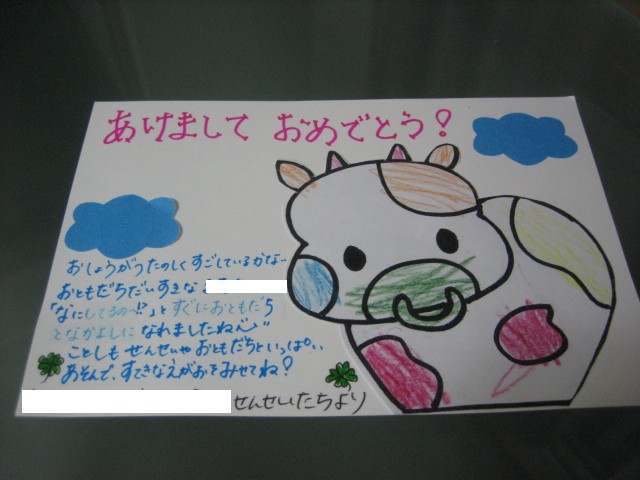 あけまして おめでとう!
おしょうがつたのしくすごしているかなー
おともだちだーいすきな
「なにしてるの〜!?」とすぐにおともだち
となかよしに なれましたね
ことしも せんせいや おともだちといっぱい
あそんで、すてきなえがおを みせてね!
せんせいたちより